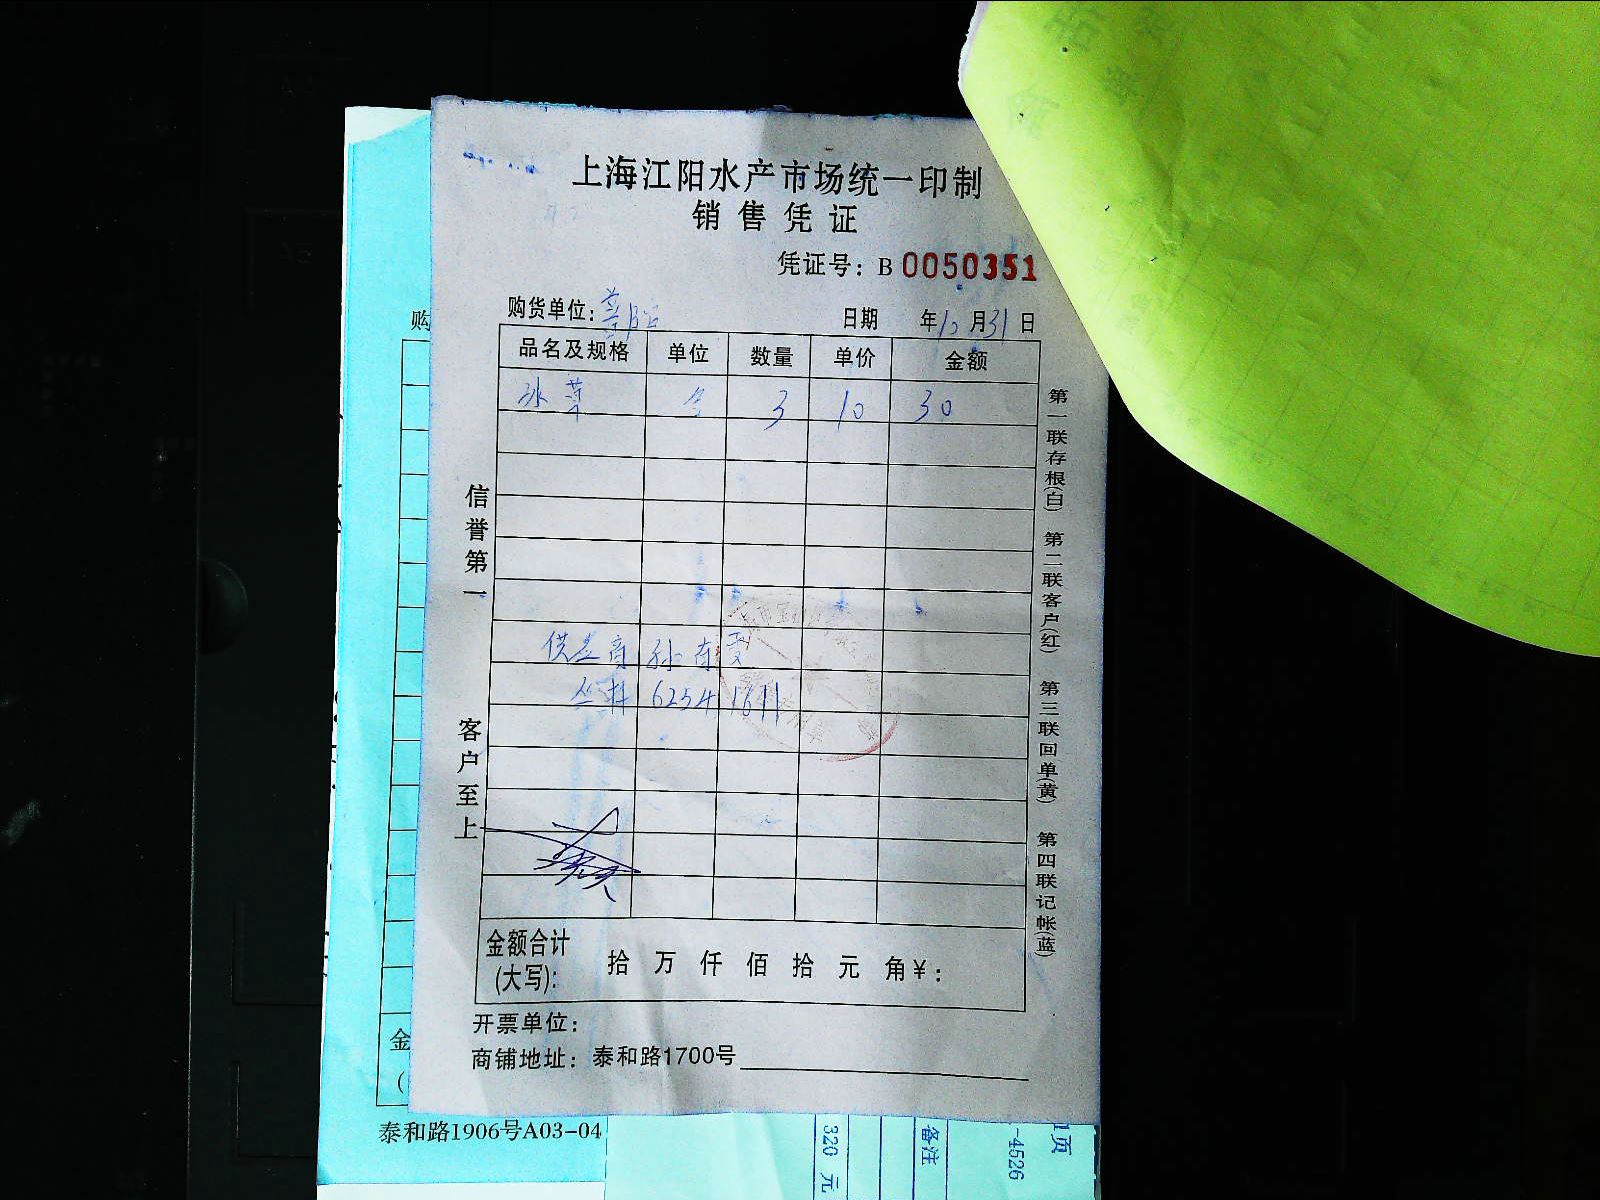 上海江阳水产市场统一印制
销售凭证
凭证号：B 0050351
购货单位：
日期 年10月31日
品名及规格 单位 数量 单价 金额
冰菜 3 10 30
供应商 孙
62541611
金额合计
(大写)： 拾 万 仟 佰 拾 元 角￥：
开票单位：
商铺地址：泰和路1700号
信誉第一
客户至上
第一联存根(白) 第二联客户(红) 第三联回单(黄) 第四联记帐(蓝)
购
金
(
泰和路1906号A03-04
320 元
备注
-4526
1页